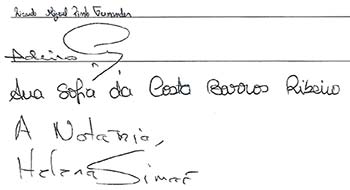 Ricardo Miguel Pinto Fernandes
Ana Sofia da Costa Barros Ribeiro
A Notária,
Helena Simas